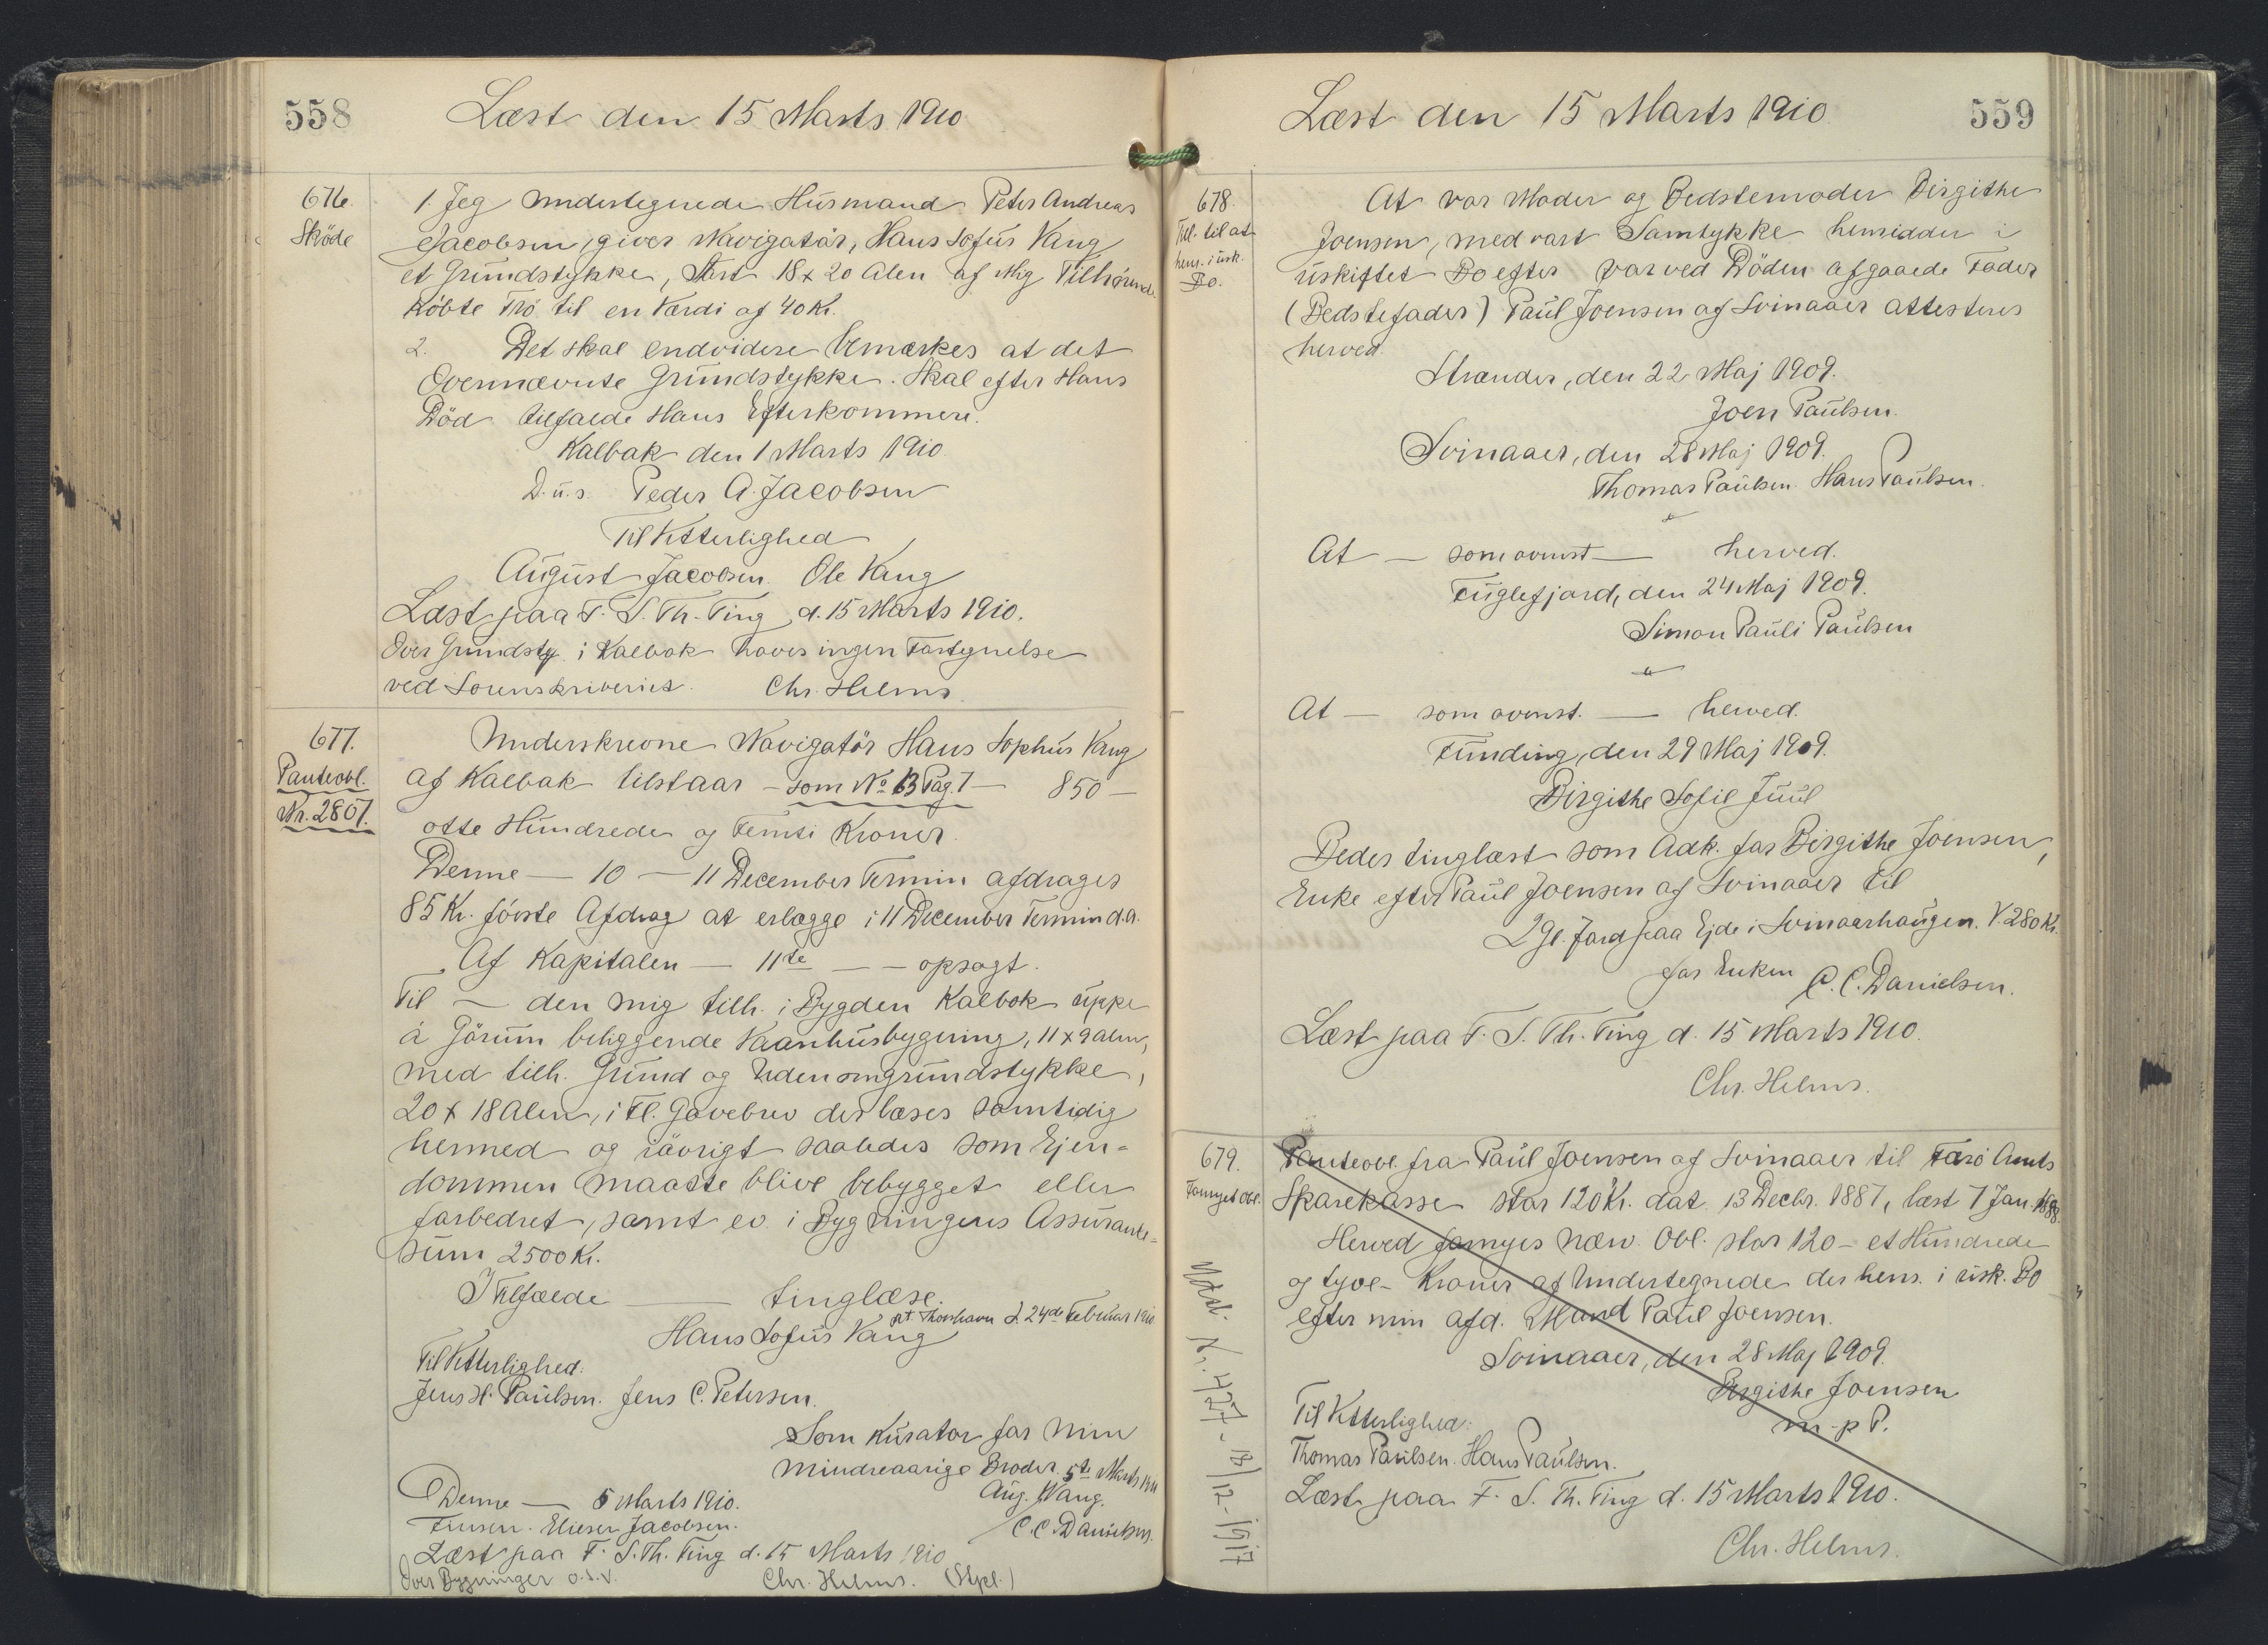 558
Læst den 15 Marts 1910
676.
Sköde
1. Jeg undertegnede Husmand Peter Andreas
Jacobsen, giver Navigatör, Hans Sofus Vang
et Grundstykke, Stort 18 x 20 Alen af Mig Tilhörende
Köbte Trö til en Værdi af 40 Kr.
2. Det skal endvidere bemærkes at det
Ovennævnte Grundstykke. Skal efter Hans
Död tilfalde Hans Efterkommere.
Kalbak den 1 Marts 1910
D.u.s. Peder A. Jacobsen
Til Vitterlighed
August Jacobsen. Ole Vang
Læst paa F. S. Th. Ting d. 15 Marts 1910.
Over Grundsty. i Kalbak haves ingen Fortegnelse
ved Sorenskriveriet. Chr. Helms
677.
Panteobl.
Nr. 2867.
Underskrevne Navigatör Hans Sophus Vang
af Kalbak tilstaar - som No 13 Pag. 7 - 850 -
otte Hundrede og Femti Kroner.
Denne - 10 - 11 December Termin afdrages
85 Kr. förste Afdrag at erlægge i 11 December Termin d.A.
Af Kapitalen - 11te - - opsagt.
Til - den mig tilh. i Bygden Kalbak uppe
á Görum beliggende Vaanhusbygning, 11 x 9 Alen,
med tilh. Grund og Udenomsgrundstykke,
20 x 18 Alen, i Fl. Gavebrev der læses samtidig
hermed og iövrigt saaledes som Ejen=
dommen maatte blive bebygget eller
forbedret, samt ev. i Bygningens Assurance=
sum 2500 Kr.
I Tilfælde - tinglæse.
pt. Thorshavn d. 24de Februar 1910
Hans Sofus Vang
Til Vitterlighed:
Jens H. Paulsen. Jens C. Petersen.
Som Kurator for min
mindreaarige Broder. 5te Marts 1910
Aug. Wang.
Denne - 5 Marts 1910.
C.C. Danielsen.
Finsen. Elieser Jacobsen.
Læst paa F. S. Th. Ting d. 15 Marts 1910
Over Bygninger o.s.v. Chr. Helms. (Stpl.)
Læst den 15 Marts 1910
559
678.
Till. til at
hens. i usk.
Bo.
At vor Moder og Bedstemoder Birgithe
Joensen, med vort Samtykke hensidder i
uskiftet Bo efter vor ved Döden afgaaede Fader
(Bedstefader) Paul Joensen af Svinaaer attesteres
herved.
Strænder, den 22 Maj 1909.
Joen Paulsen.
Svinaaer, den 28 Maj 1909.
Thomas Paulsen. Hans Paulsen.
At - som ovenst - herved.
Fuglefjord, den 24 Maj 1909.
Simon Pauli Paulsen
At - som ovenst. - herved.
Funding, den 29 Maj 1909.
Birgithe Sofie Juul
Bedes tinglæst som Adk. for Birgithe Joensen,
Enke efter Paul Joensen af Svinaaer til
2 Gl. Jord paa Ejde i Svinaarhaugen. V. 280 Kr.
for Enken C. C. Danielsen.
Læst paa F. S. Th. Ting d. 15 Marts 1910.
Chr. Helms.
679.
Fornyet Obl.
Panteobl. fra Paul Joensen af Svinaaer til Færö Amts
Sparekasse stor 120 Kr. dat. 13 Decbr. 1887, læst 7 Jan. 1888.
Herved fornyes næv. Obl. stor 120 - et Hundrede
og tyve - Kroner af Undertegnede der hens. i usk. Bo
efter min afd. Mand Paul Joensen.
Svinaaer, den 28 Maj 1909.
Birgithe Joensen
m.p.P.
Til Vitterlighed:
Thomas Paulsen. Hans Paulsen.
Læst paa F. S. Th. Ting d. 15 Marts 1910.
Chr. Helms.
Udsl. Nr. 427 - 18/12 - 1917